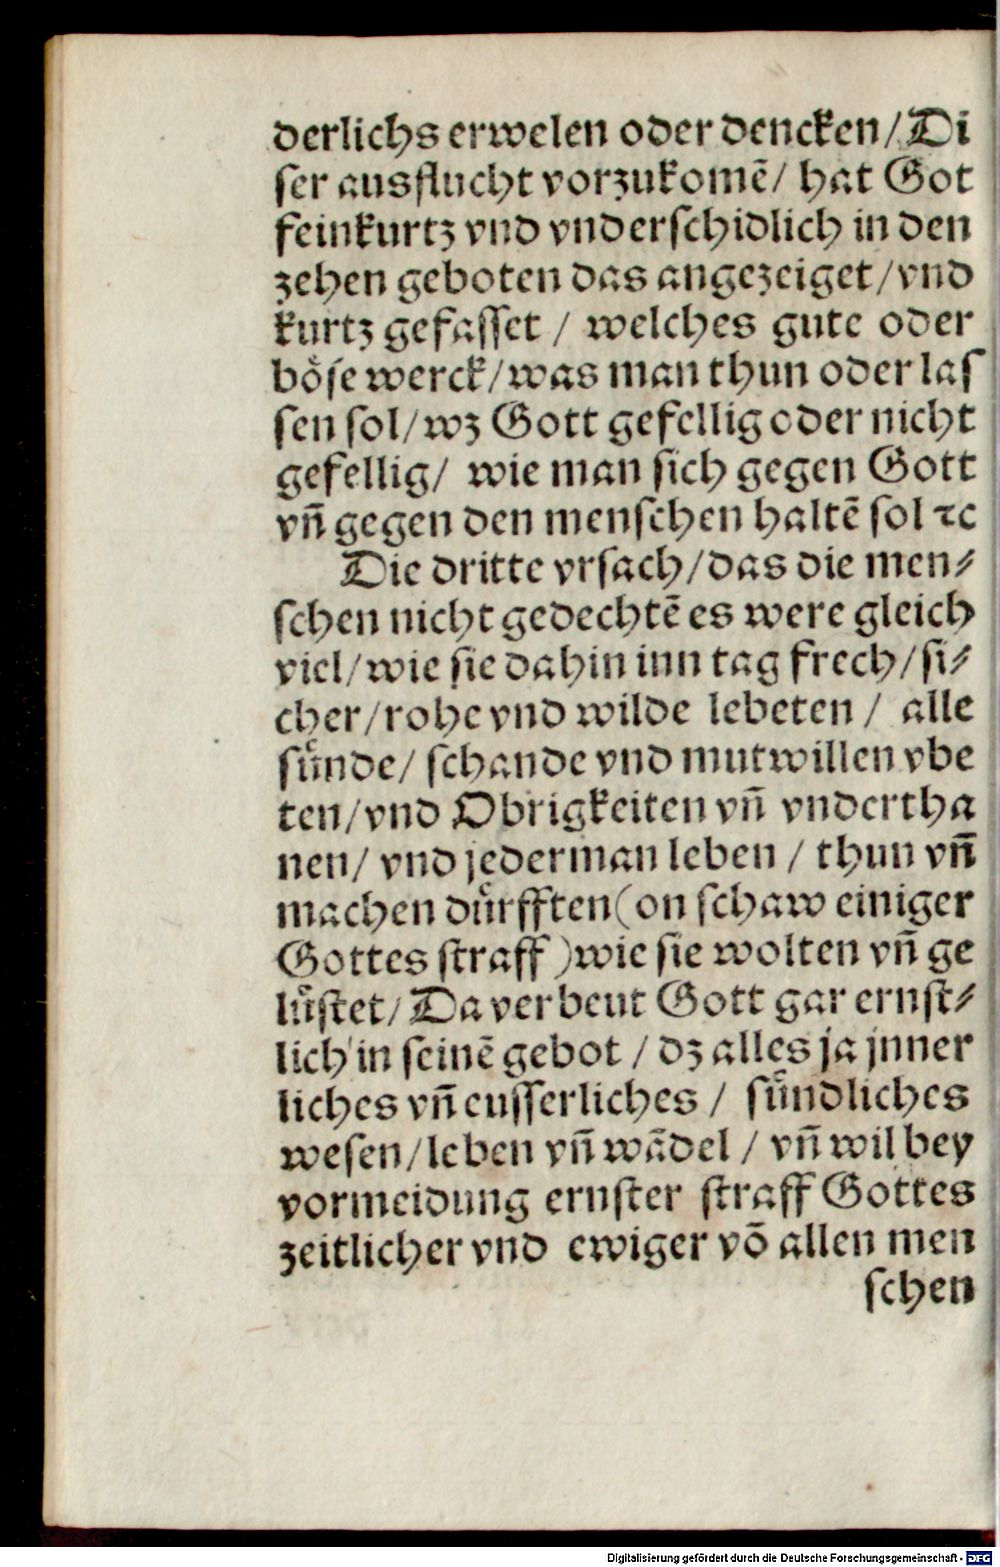 derlichs erwelen oder dencken/Di
ſer ausflucht vorzukomē/ hat Got
feinkurtz vnd vnderſchidlich in den
zehen geboten das angezeiget/vnd
kurtz gefaſſet / welches gute oder
boͤſe werck/was man thun oder laſ
ſen ſol/wz Gott gefellig oder nicht
gefellig/ wie man ſich gegen Gott
vn̄ gegen den menſchen haltē ſol ⁊c
Die dritte vrſach/das die men⸗
ſchen nicht gedechtē es were gleich
viel/wie ſie dahin inn tag frech/ſi⸗
cher/rohe vnd wilde lebeten / alle
ſuͤnde/ ſchande vnd mutwillen vbe
ten/vnd Obrigkeiten vn̄ vndertha
nen/ vnd jederman leben / thun vn̄
machen duͤrfften(on ſchaw einiger
Gottes ſtraff)wie ſie wolten vn̄ ge
luͤſtet/Da verbeut Gott gar ernſt⸗
lich in ſeinē gebot / dz alles ja jnner
liches vn̄ euſſerliches / ſuͤndliches
weſen/leben vn̄ wādel / vn̄ wil bey
vormeidung ernſter ſtraff Gottes
zeitlicher vnd ewiger vō allen men
ſchen
Digitalisierung gefördert durch die Deutsche Forschungsgemeinschaft - DFG